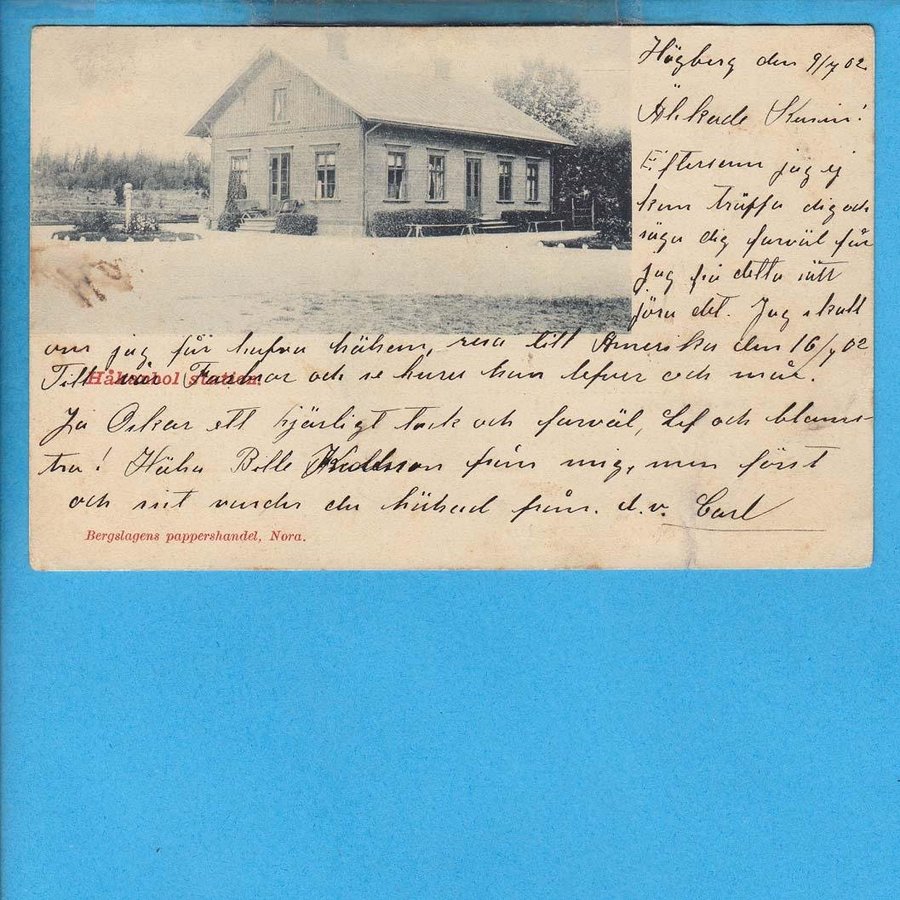 Högberg den 9/7 02.
Älskade Kusin!
Eftersom jag ej
kan träffa dig och
säga dig farväl får
jag på detta sätt
göra det. Jag skall
om jag får hafva hälsan, resa till Amerika den 16/7 02
Till Farmor och se huru han lefver och mår.
Håkansbol station.
Ja Oskar ett hjärligt tack och farväl, Lef och bloms-
tra! Hälsa från mig, men först
och sist varder du hälsad från. d.v. Carl
Bergslagens pappershandel, Nora.